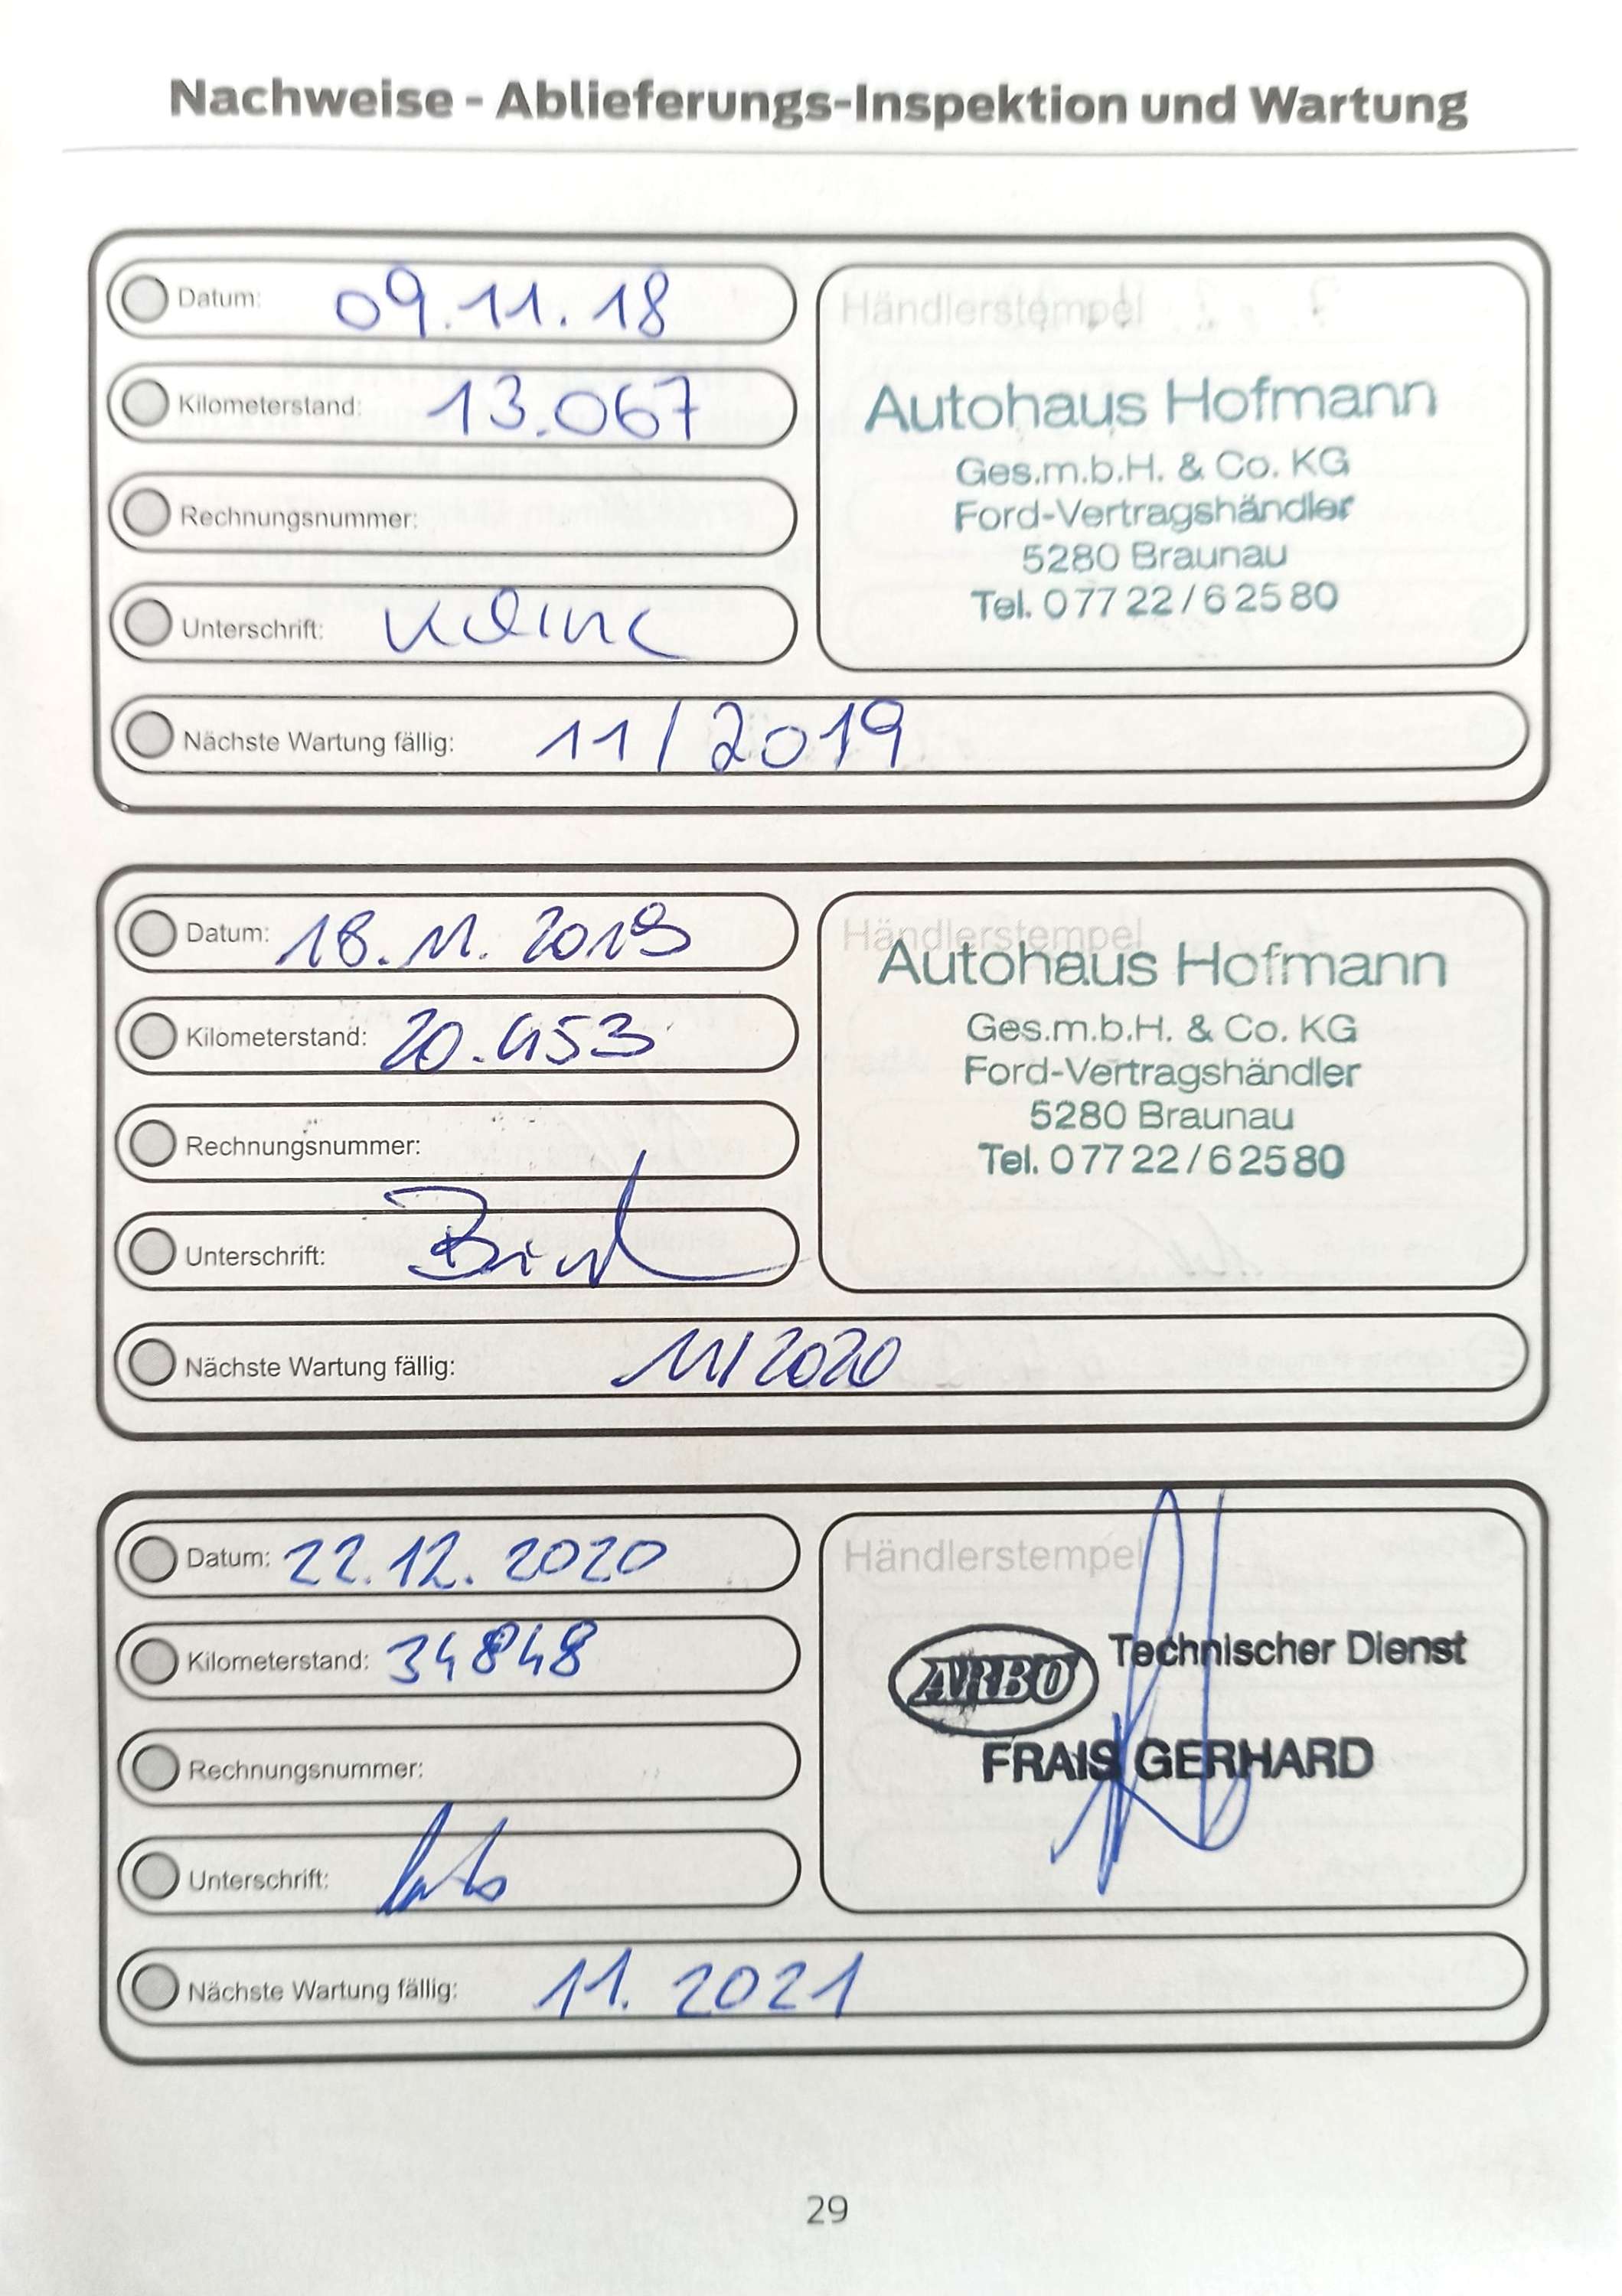 Nachweise - Ablieferungs-Inspektion und Wartung
Datum: 09.11.18
Kilometerstand: 13.067
Rechnungsnummer:
Unterschrift:
Händlerstempel
Autohaus Hofmann
Ges.m.b.H. & Co. KG
Ford-Vertragshändler
5280 Braunau
Tel. 0 77 22 / 6 25 80
Nächste Wartung fällig: 11/2019
Datum: 18.11.2019
Kilometerstand: 20.453
Rechnungsnummer:
Unterschrift:
Händlerstempel
Autohaus Hofmann
Ges.m.b.H. & Co. KG
Ford-Vertragshändler
5280 Braunau
Tel. 0 77 22 / 6 25 80
Nächste Wartung fällig: 11/2020
Datum: 22.12.2020
Kilometerstand: 34848
Rechnungsnummer:
Unterschrift:
Händlerstempel
ARBÖ Technischer Dienst
FRAIS GERHARD
Nächste Wartung fällig: 11.2021
29